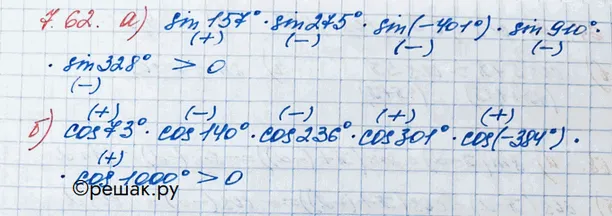 7.62. а) sin157°·sin275°·sin(-401°)·sin910°·
(+) (-) (-) (-)
·sin328° > 0
(-)
(+) (-) (-) (+) (+)
б) cos73°·cos140°·cos236°·cos301°·cos(-384°)·
(+)
·cos1000° > 0
©решак.ру